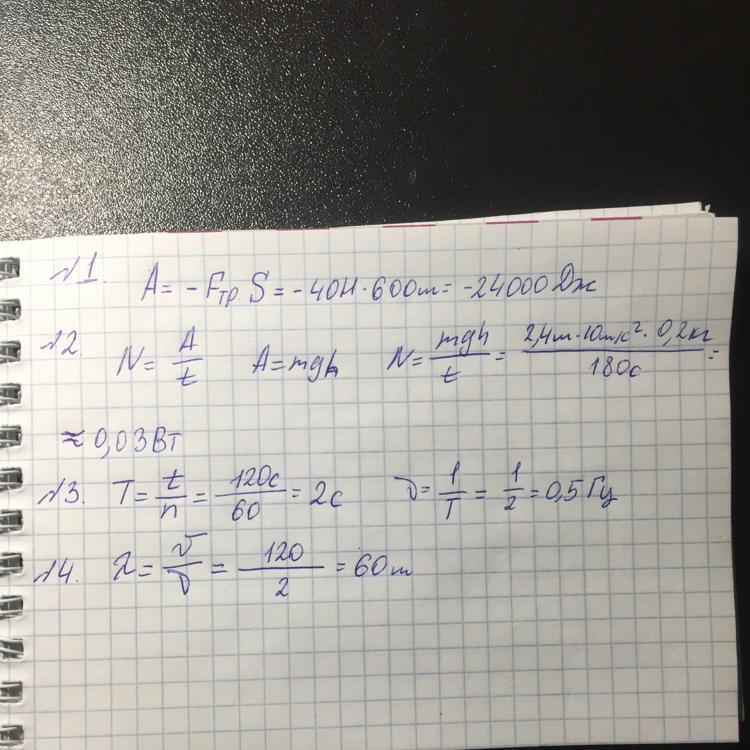 №1. A = - Fтр. S = - 40Н · 600м = -24000 Дж
№2 N = A/t A = mgh N = mgh/t = 2,4м · 10м/с² · 0,2кг/180с =
≈ 0,03 Вт
№3. T = t/n = 120с/60 = 2с ν = 1/T = 1/2 = 0,5 Гц
№4. λ = v/ν = 120/2 = 60м